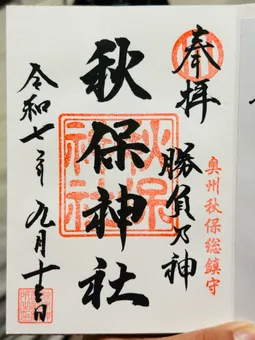 奉拝
勝負乃神
奥州秋保総鎮守
秋保神社
秋保神社
令和七年 九月十三日